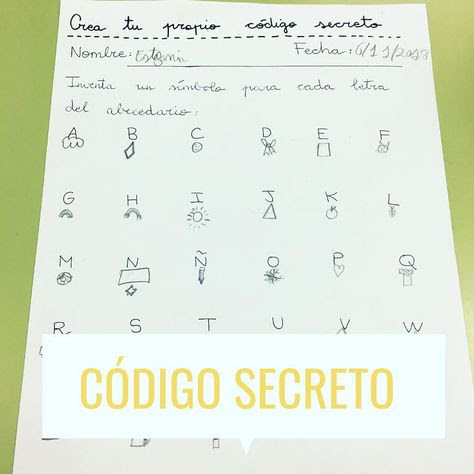 Crea tu propio código secreto
Nombre: Fecha: 6/11/2018
Inventa un símbolo para cada letra
del abecedario:
A B C D E F
G H I J K L
M N Ñ O P Q
R S T U V W
CÓDIGO SECRETO